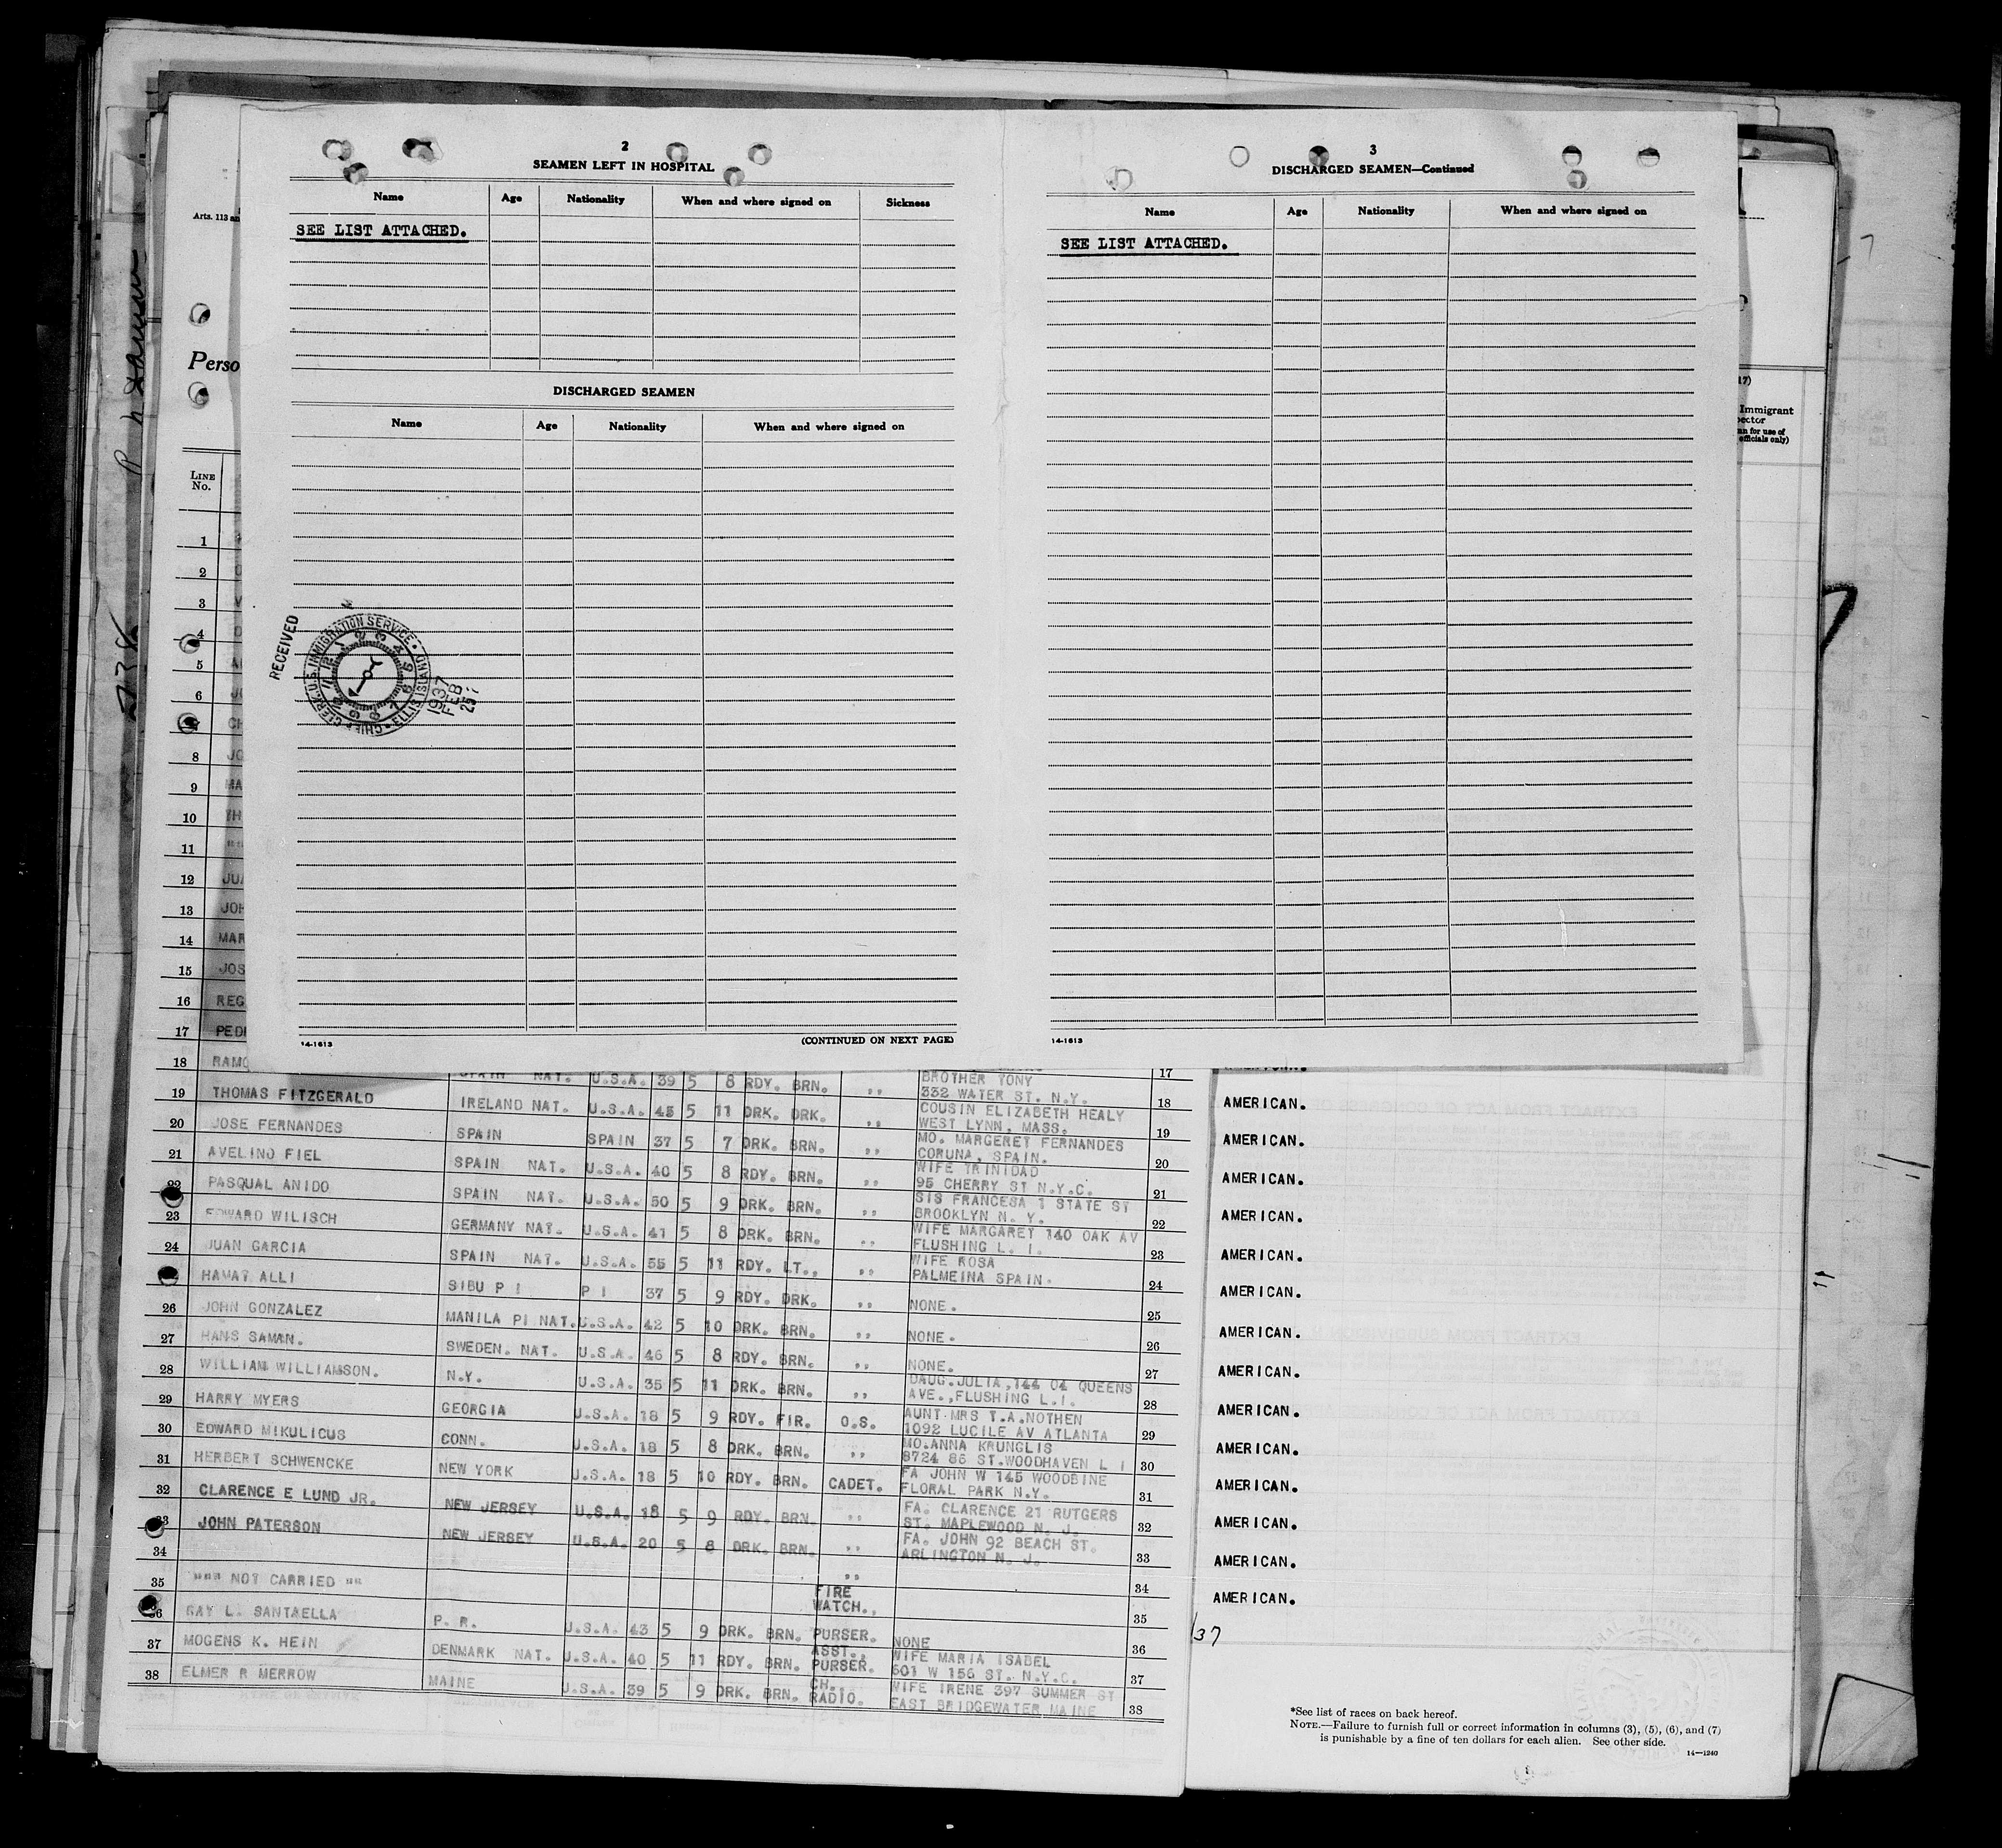 2
SEAMEN LEFT IN HOSPITAL
Name Age Nationality When and where signed on Sickness
SEE LIST ATTACHED.
DISCHARGED SEAMEN
Name Age Nationality When and where signed on
RECEIVED
CHIEF CLERK U.S. IMMIGRATION SERVICE • ELLIS ISLAND
1937
FEB
25
14-1613
(CONTINUED ON NEXT PAGE)
3
DISCHARGED SEAMEN—Continued
Name Age Nationality When and where signed on
SEE LIST ATTACHED.
14-1613
Arts. 113 an
Perso
LINE
No.
17)
Immigrant
officials only)
1
2
3
4
5
6
8 JO
9 MA
10
11
12 JUA
13 JOH
14 MAR
15 JOS
16 REG
17
18 RAMO
NAT. U.S.A. 39 5 8 RDY. BRN. ,, BROTHER TONY 17
332 WATER ST. N.Y.
19 THOMAS FITZGERALD IRELAND NAT. U.S.A. 45 5 11 DRK. DRK. ,, COUSIN ELIZABETH HEALY 18 AMERICAN.
WEST LYNN, MASS.
20 JOSE FERNANDES SPAIN SPAIN 37 5 7 DRK. BRN. ,, MO. MARGERET FERNANDES 19 AMERICAN.
CORUNA, SPAIN.
21 AVELINO FIEL SPAIN NAT. U.S.A. 40 5 8 RDY. BRN. ,, WIFE TRINIDAD 20 AMERICAN.
95 CHERRY ST N.Y.C.
22 PASQUAL ANIDO SPAIN NAT. U.S.A. 50 5 9 DRK. BRN. ,, SIS FRANCESA 1 STATE ST 21 AMERICAN.
BROOKLYN N. Y.
23 EDWARD WILISCH GERMANY NAT. U.S.A. 41 5 8 DRK. BRN. ,, WIFE MARGARET 140 OAK AV 22 AMERICAN.
FLUSHING L. I.
24 JUAN GARCIA SPAIN NAT. U.S.A. 55 5 11 RDY. LT., ,, WIFE ROSA 23 AMERICAN.
PALMEINA SPAIN. 24
HAMAT ALLI SIBU P I P I 37 5 9 RDY. DRK. ,, NONE. 25 AMERICAN.
26 JOHN GONZALEZ MANILA PI NAT. U.S.A. 42 5 10 DRK. BRN. ,, NONE. 26 AMERICAN.
27 HANS SAMAN. SWEDEN. NAT. U.S.A. 46 5 8 RDY. BRN. ,, NONE. 27 AMERICAN.
28 WILLIAM WILLIAMSON. N.Y. U.S.A. 35 5 11 DRK. BRN. ,, DAUG.JULIA,144 04 QUEENS
AVE.,FLUSHING L.I. 28 AMERICAN.
29 HARRY MYERS GEORGIA U.S.A. 18 5 9 RDY. FIR. O.S. AUNT MRS T.A.NOTHEN
1092 LUCILE AV ATLANTA 29 AMERICAN.
30 EDWARD MIKULICUS CONN. U.S.A. 18 5 8 DRK. BRN. ,, MO.ANNA KRUNGLIS
8724 86 ST.WOODHAVEN L I 30 AMERICAN.
31 HERBERT SCHWENCKE NEW YORK U.S.A. 18 5 10 RDY. BRN. CADET. FA JOHN W 145 WOODBINE
FLORAL PARK N.Y. 31 AMERICAN.
32 CLARENCE E LUND JR. NEW JERSEY U.S.A. 18 5 9 RDY. BRN. ,, FA. CLARENCE 21 RUTGERS
ST. MAPLEWOOD N. J. 32 AMERICAN.
33 JOHN PATERSON NEW JERSEY U.S.A. 20 5 8 DRK. BRN. ,, FA. JOHN 92 BEACH ST.
ARLINGTON N. J. 33 AMERICAN.
34 ,, 34 AMERICAN.
35 """ NOT CARRIED "" FIRE
WATCH., 35
36 RAY L. SANTAELLA P. R. U.S.A. 43 5 9 DRK. BRN. PURSER. NONE 36
37 MOGENS K. HEIN DENMARK NAT. U.S.A. 40 5 11 RDY. BRN. ASST., PURSER. WIFE MARIA ISABEL
601 W 156 ST. N.Y.C. 37
38 ELMER R MERROW MAINE U.S.A. 39 5 9 DRK. BRN. CH., RADIO. WIFE IRENE 397 SUMMER ST
EAST BRIDGEWATER MAINE 38
37
*See list of races on back hereof.
NOTE.—Failure to furnish full or correct information in columns (3), (5), (6), and (7)
is punishable by a fine of ten dollars for each alien. See other side.
14—1240